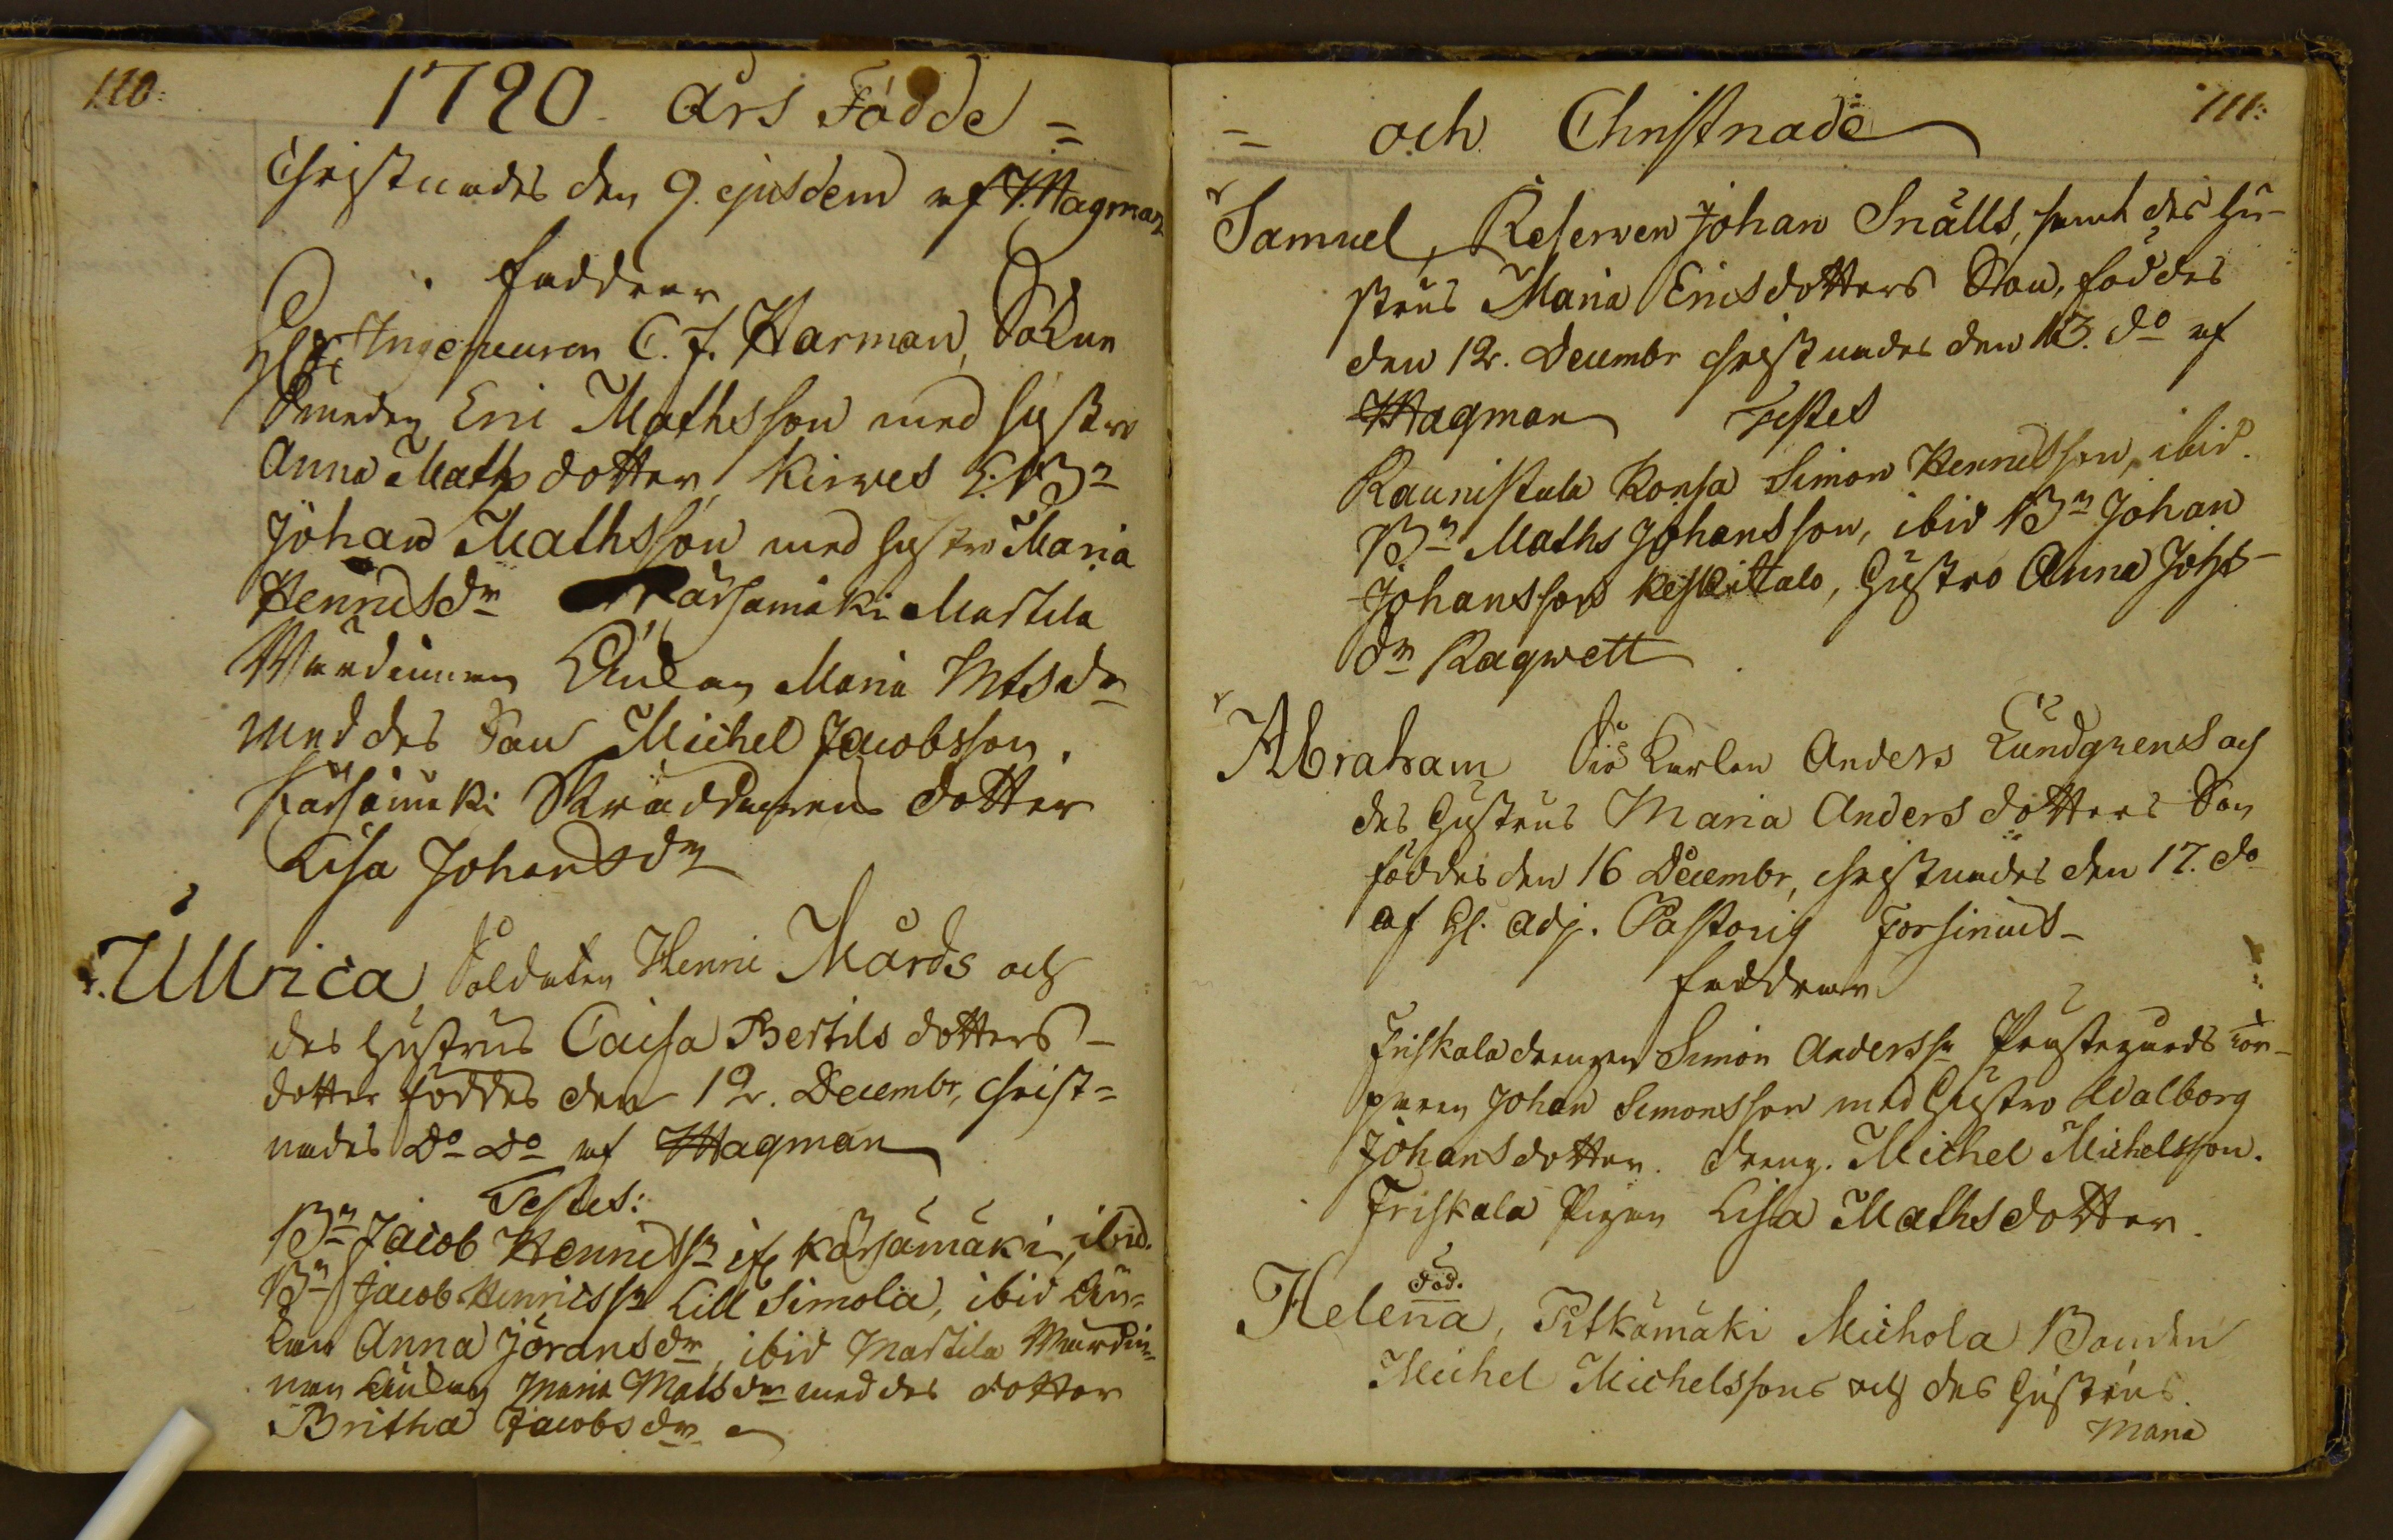 110:
1790. års Födde =
Christnades den 9. ejusdem af J. Wagman
Faddrar
Ingenieuren C. J. Harman, Sokne
Smeden Eric Mathsson med hustru
Anna Mathsdotter, Kirves
Johan Mathsson med hustru Maria
Henricsdr Kärsämäki Martila
Wärdinnan Enkan Maria Matsdr
med des Son Michel Jacobsson.
Kärsämäki Skräddarens dotter
Lisa Johansdr
Ullrica, Soldaten Henric Mårds och
des hustrus Caisa Bertils dotters
dotter föddes den 12. Decembr, Christ=
nades do do af Wagman
Testes:
Bn Jacob Henricss. if. Kärsämäki, ibid.
Bn Jacob Henricss. Lill Simola, ibid En=
kan Anna Jöransdr, ibid Martila Wärdin=
nan Enkan Maria Matsdr med des dotter
Britha Jacobsdr
111:
= och Christnade
Samuel, Reserven Johan Snälls, samt des hu-
strus Maria Ericsdotters Son, föddes
den 12. Decembr Christnades den 13. do af
Wagman Testes
Raunistula Konsa Simon Henricsson, ibid.
Bn Maths Johansson, ibid Bn Johan
Johansson Keskitalo, Hustro Anna Johs-
dr Ragwett
Abraham Siö Karlen Anders Lundgrens och
des Hustrus Maria Anders dotters Son
föddes den 16 Decembr, Christnades den 17. do
af H. Adj. Pastoris Forsinius
Faddrar
Friskala drengen Simon Anderss. Prästegårds Tor-
paren Johan Simonsson med Hustro Walborg
Johansdotter. Dreng. Michel Michelsson.
Friskala Pigan Lisa Mathsdotter.
död.
Helena, Pitkämäki Michola Bonden
Michel Michelssons och des Hustrus
Maria